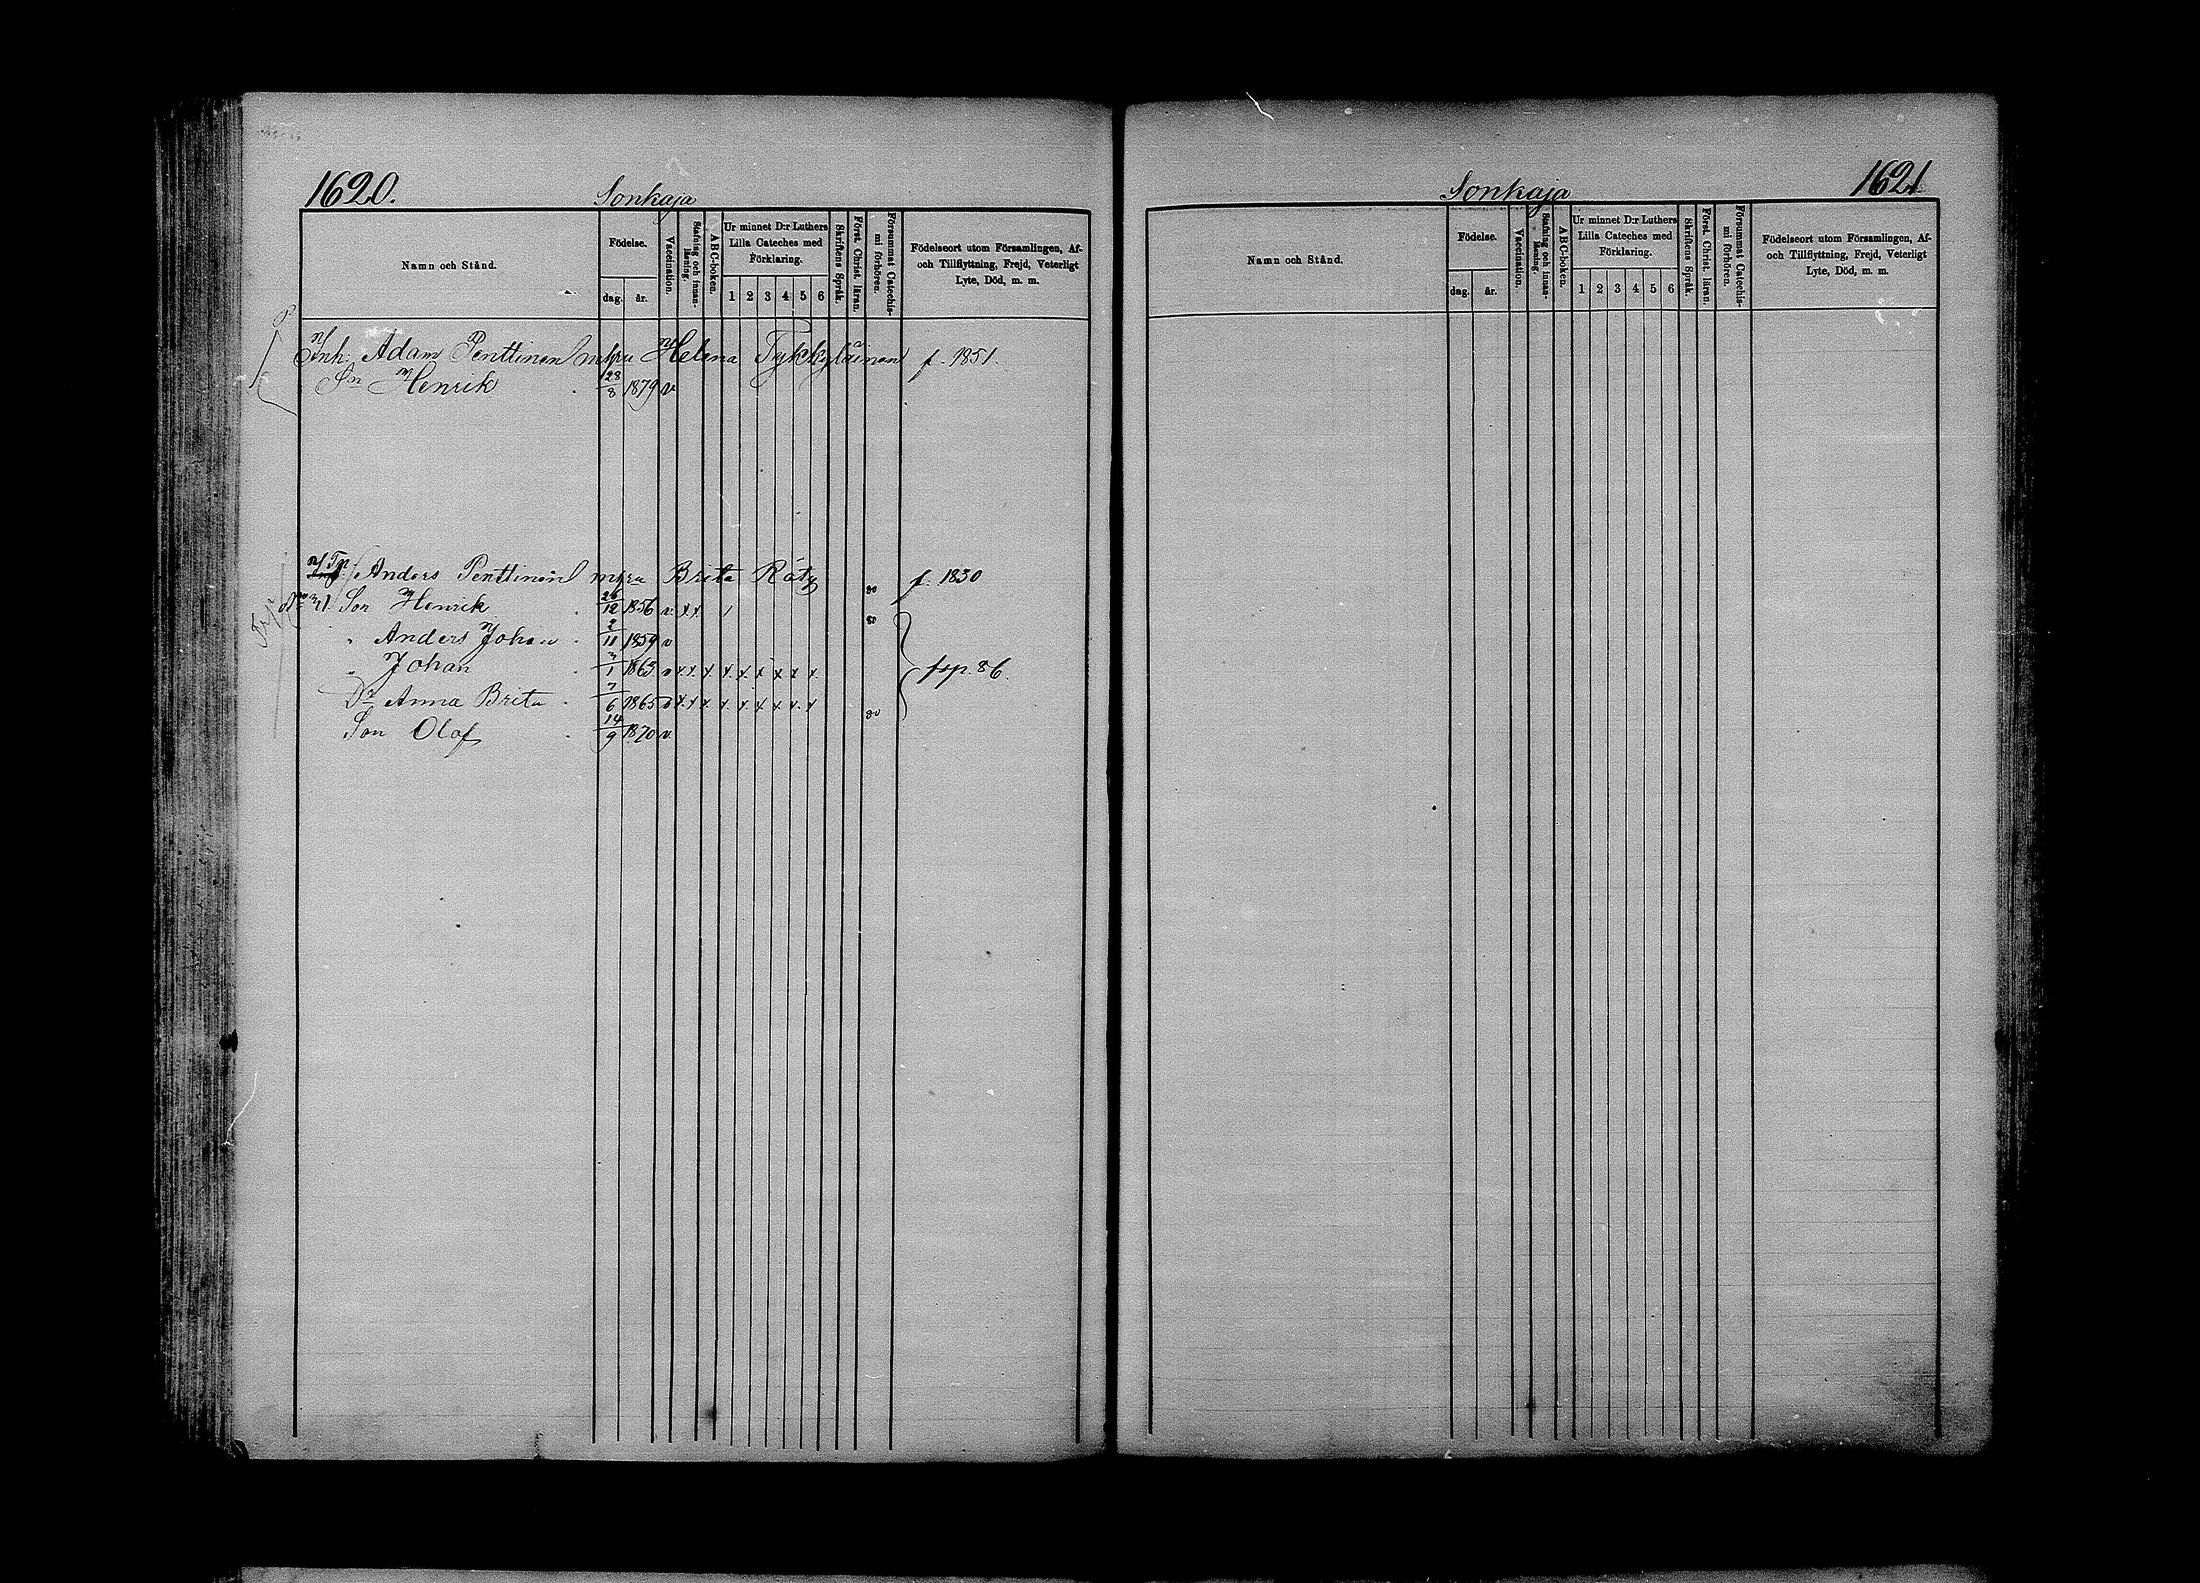 1620.
Sonkaja
Namn och Stånd.
Födelse.
dag.
år.
Vaccination.
Stafning och innan-läsning.
ABC-boken.
Ur minnet D:r Luthers
Lilla Cateches med
Förklaring.
1 2 3 4 5 6
Skriftens Språk.
Först. Christ. läran.
Försummat Catechis-mi förhören.
Födelseort utom Församlingen, Af-
och Tillflyttning, Frejd, Veterligt
Lyte, Död, m. m.
Inh. Adam Penttinen mhru Helena Tykkyläinen f. 1851.
Sn Henrik 28/8 1879 v
Anders Penttinen mhru Brita Räty f. 1830
Son Henrik 26/12 1856 v. x x
" Anders Johan 2/11 1859 v
" Johan 3/1 1863 v x x x x x x x x x
Dr Anna Brita 7/6 1865 v x x x x x x x x x
Son Olof 14/9 1870 v.
frp. 86.
1621
Sonkaja
Namn och Stånd.
Födelse.
dag.
år.
Vaccination.
Stafning och innan-läsning.
ABC-boken.
Ur minnet D:r Luthers
Lilla Cateches med
Förklaring.
1 2 3 4 5 6
Skriftens Språk.
Först. Christ. läran.
Försummat Catechis-mi förhören.
Födelseort utom Församlingen, Af-
och Tillflyttning, Frejd, Veterligt
Lyte, Död, m. m.